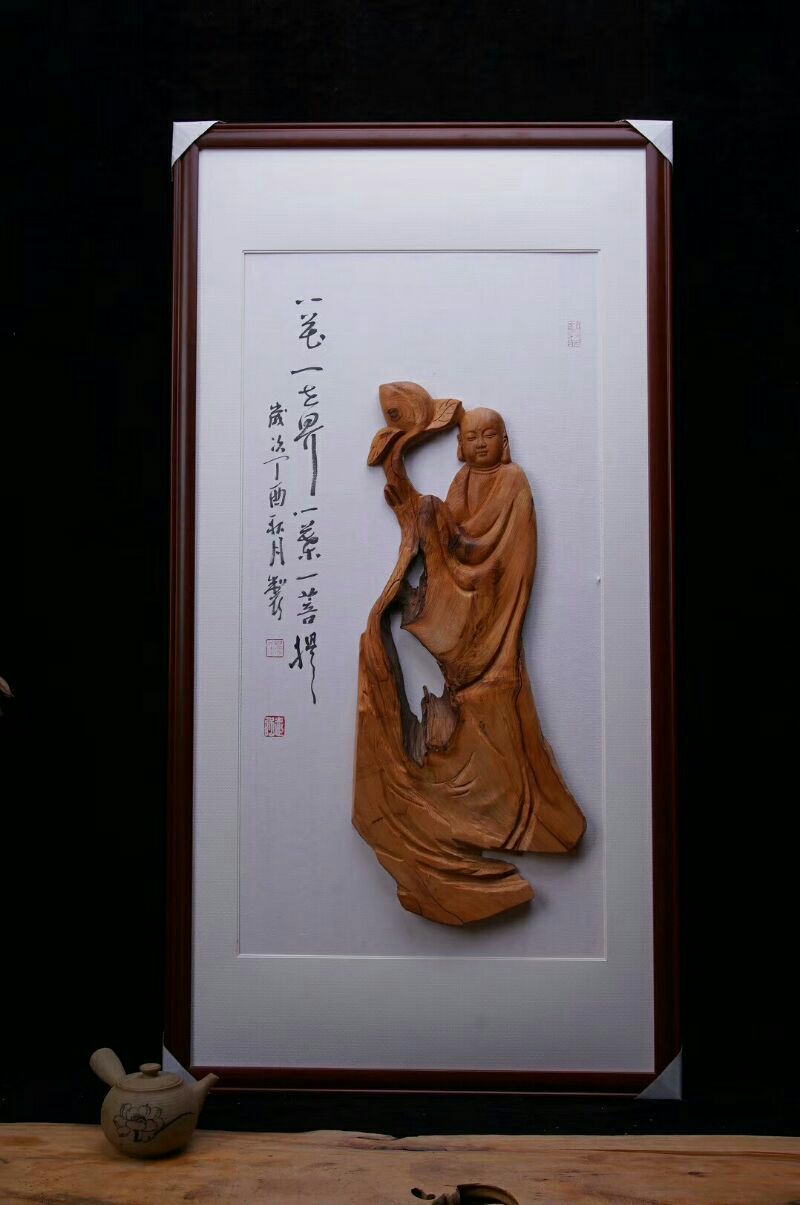 一花一世界一葉一菩提
歲次丁酉秋月製